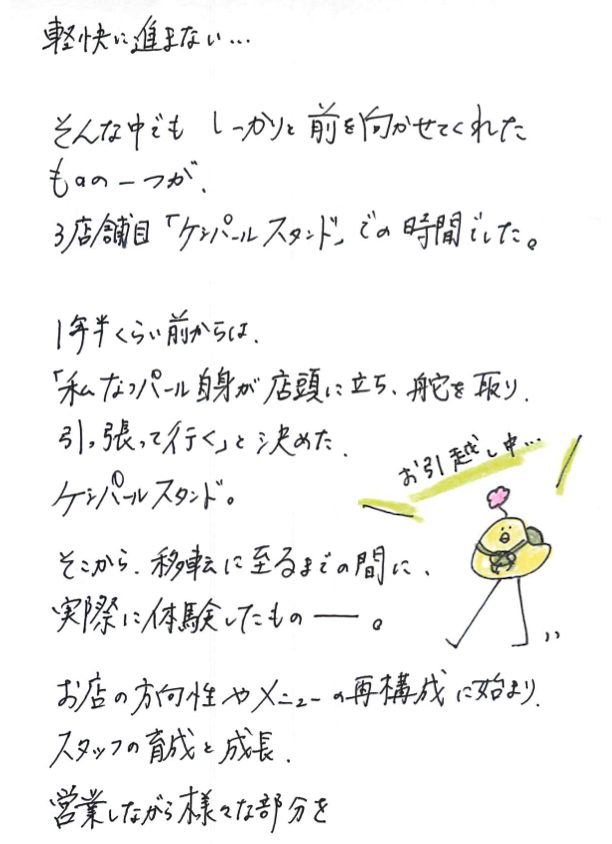 軽快に進まない…
そんな中でも しっかりと 前を向かせてくれた
ものの一つが、
3店舗目「ケンパールスタンド」での時間でした。
1年半くらい前からは、
「私なつパール自身が店頭に立ち、舵を取り、
引っ張って行く」と決めた、
ケンパールスタンド。
お引越し中…
そこから、移転に至るまでの間に、
実際に体験したもの──。
お店の方向性やメニューの再構成に始まり、
スタッフの育成と成長、
営業しながら様々な部分を